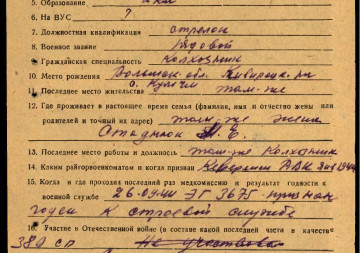 5. Образование 4 кл.
6. На ВУС ?
7. Должностная квалификация стрелок
8. Военное звание Рядовой
9. Гражданская специальность Колхозник
10. Место рождения обл.
11. Последнее место жительства там-же
12. Где проживает в настоящее время семья (фамилия, имя и отчество жены или
родителей и точный их адрес) там-же жена
13. Последнее место работы и должность там-же Колхозник
14. Каким райгорвоенкоматом и когда призван
15. Когда и где проходил последний раз медкомиссию и результат годности к
военной службе 26.09.44 ЭГ 3675 признан
годен к строевой службе
16. Участие в Отечественной войне (в составе какой последней части и в качестве
389 сп Не участвовал